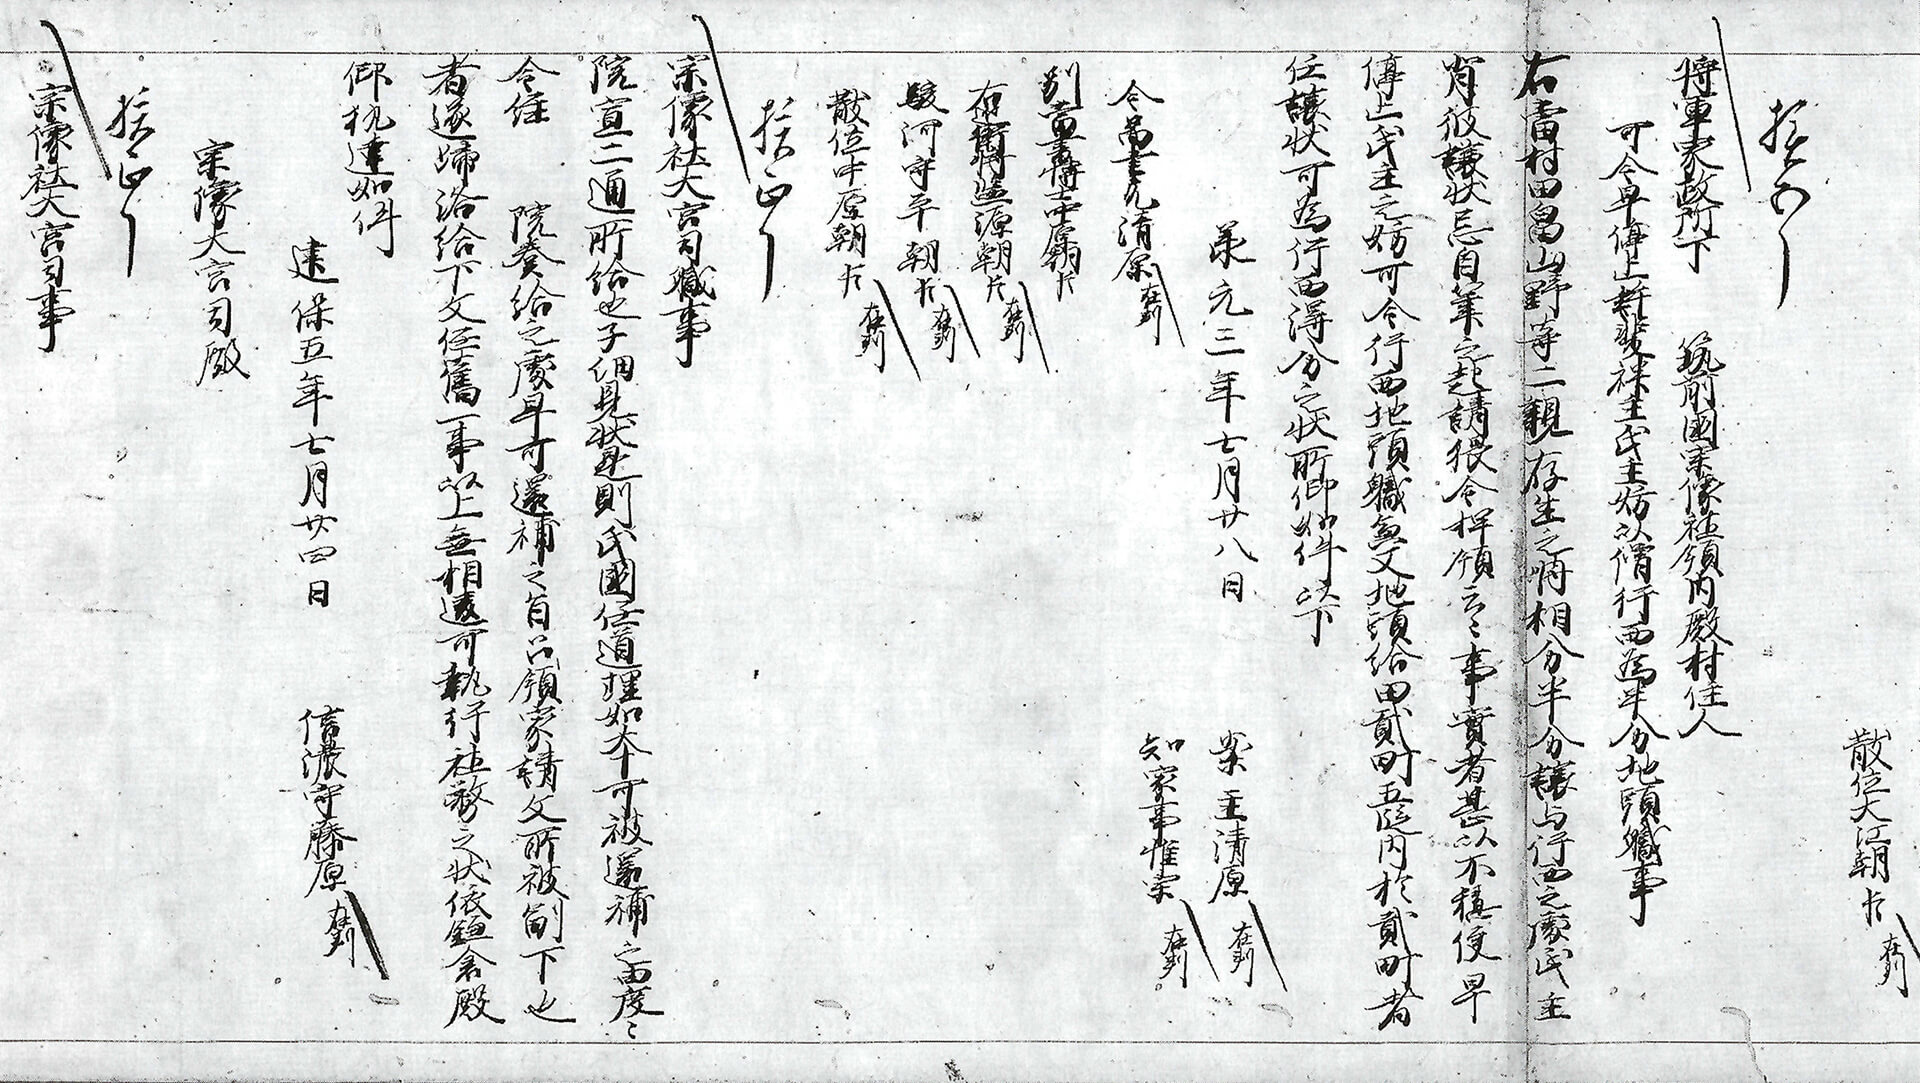 散位大江朝臣在判
将軍家政所下　筑前國宗像社領内殿村住人
可令早停止非拠氏主妨以僧行西為半分地頭職事
右當村田畠山野等二親存生之時相分半分譲与行西之處氏主
背彼譲状忌自筆之起請猥令押領云々事實者甚以不穏便早
停止氏主之妨可令行西地頭職兼又地頭給田貳町五段内於貳町者
任譲状可為行西得分之状所仰如件以下
承元三年七月廿八日　案主清原在判
知家事惟宗在判
令圖書允清原在判
別當書博士中原朝臣
右近衛将監源朝臣在判
駿河守平朝臣在判
散位中原朝臣在判
宗像社大宮司職事
院宣二通所給也子細見状是則氏國任道理如本可被還補之由度々
令經　院奏給之處早可還補之旨以領家請文所被副下也
者遂帰洛給下文任舊事以上無相違可執行社務之状依鎌倉殿
仰執達如件
建保五年七月廿四日　信濃守藤原在判
宗像大宮司殿
宗像社大宮司事